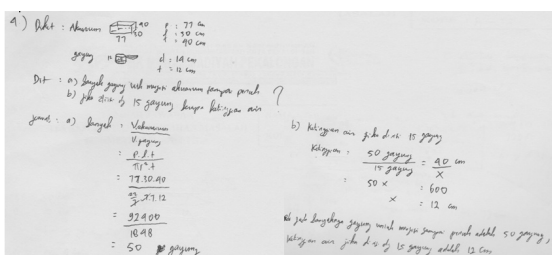 4) Dikt : Akuarium 40 30 77 p : 77 cm
l : 30 cm
t : 40 cm
gayung = d = 14 cm
t = 12 cm
Dit : a) banyak gayung utk mengisi akuarium sampai penuh
b) jika diisi dg 15 gayung berapa ketinggian air ?
jawab : a) banyak = V.akuarium
V.gayung
= p.l.t
πr².t
= 77.30.40
22/7.7.7.12
= 92400
1848
= 50 gayung
b) ketinggian air jika diisi 15 gayung
Ketinggian : 50 gayung / 15 gayung = 40 cm / x
= 50 x = 600
x = 12 cm
jadi banyaknya gayung untuk mengisi sampai penuh adalah 50 gayung,
ketinggian air jika diisi dg 15 gayung adalah 12 cm